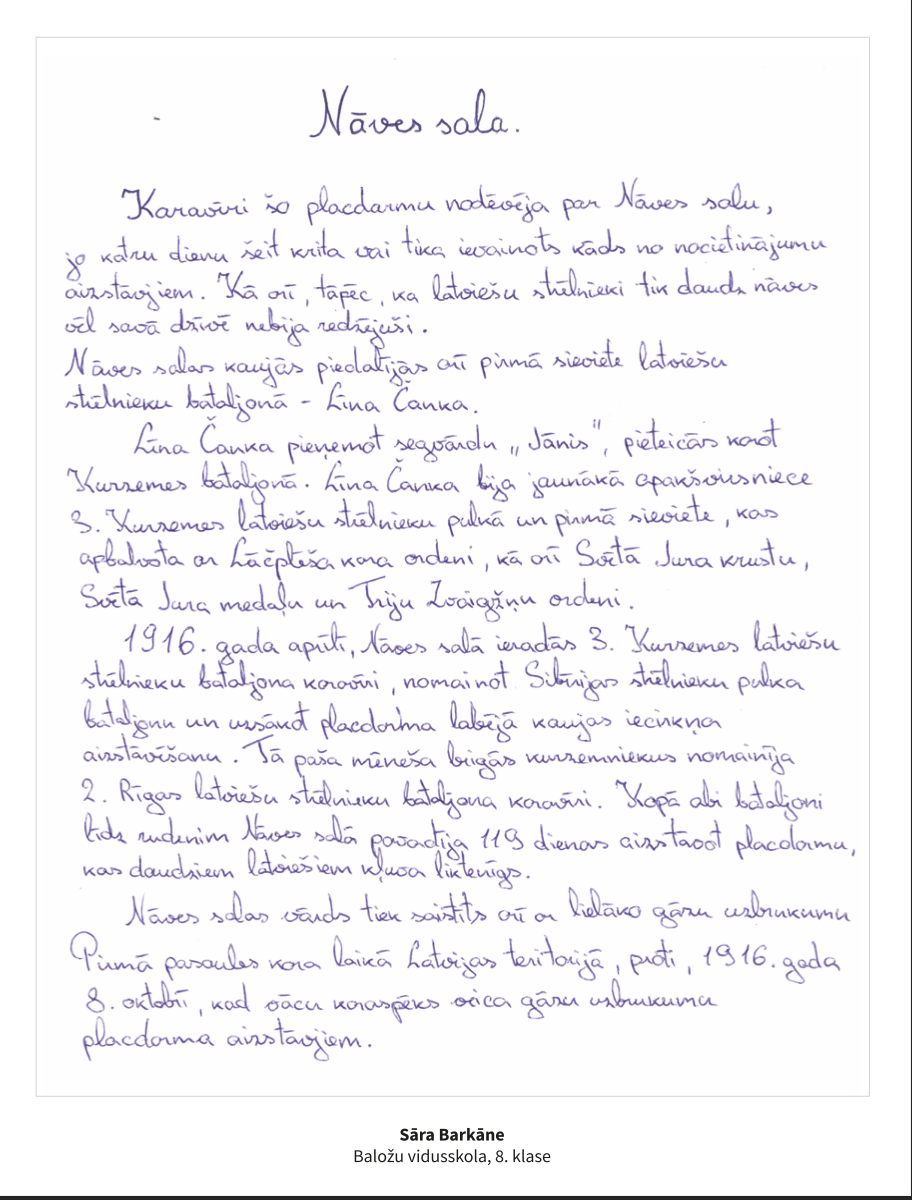 Nāves sala.
Karavīri šo placdarmu nodēvēja par Nāves salu,
jo katru dienu šeit krita vai tika ievainots kāds no nocietinājumu
aizstāvjiem. Kā arī, tāpēc, ka latviešu strēlnieki tik daudz nāves
vēl savā dzīvē nebija redzējuši.
Nāves salas kaujās piedalījās arī pirmā sieviete latviešu
strēlnieku bataljonā - Līna Čanka.
Līna Čanka pieņemot segvārdu „Jānis”, pieteicās karot
Kurzemes bataljonā. Līna Čanka bija jaunākā apakšvirsniece
3. Kurzemes latviešu strēlnieku pulkā un pirmā sieviete, kas
apbalvota ar Lāčplēša kara ordeni, kā arī Svētā Jura krustu,
Svētā Jura medaļu un Triju Zvaigžņu ordeni.
1916. gada aprīlī, Nāves salā ieradās 3. Kurzemes latviešu
strēlnieku bataljona karavīri, nomainot Sibīrijas strēlnieku pulka
bataljonu un uzsākot placdarma labējā kaujas iecirkņa
aizstāvēšanu. Tā paša mēneša beigās kurzemniekus nomainīja
2. Rīgas latviešu strēlnieku bataljona karavīri. Kopā abi bataljoni
līdz rudenim Nāves salā pavadīja 119 dienas aizstāvot placdarmu,
kas daudziem latviešiem kļuva liktenīgs.
Nāves salas vārds tiek saistīts arī ar lielāko gāzu uzbrukumu
Pirmā pasaules kara laikā Latvijas teritorijā, proti, 1916. gada
8. oktobrī, kad vācu karaspēks veica gāzu uzbrukumu
placdarma aizstāvjiem.
Sāra Barkāne
Baložu vidusskola, 8. klase